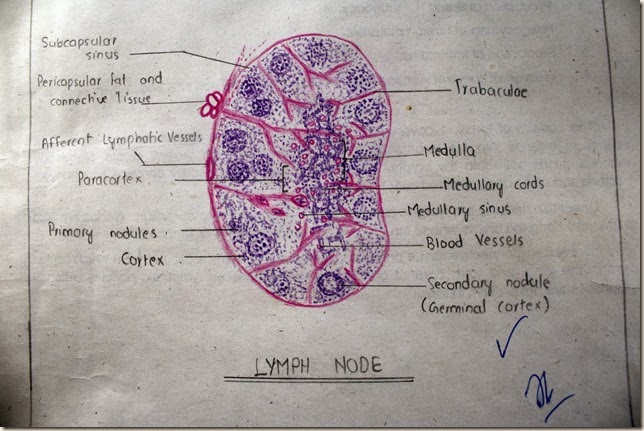 Subcapsular
sinus
Pericapsular fat and
connective Tissue
Afferent Lymphatic Vessels
Paracortex
Primary nodules
Cortex
Trabaculae
Medulla
Medullary cords
Medullary sinus
Blood Vessels
Secondary nodule
(Germinal cortex)
LYMPH NODE